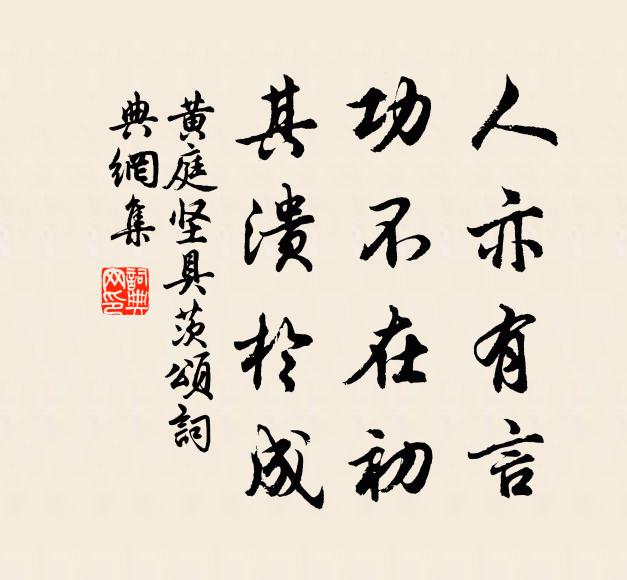 人亦有言
功不在初
其溃於成
黄庭坚具茨頌詞
典網集
詞典
网印